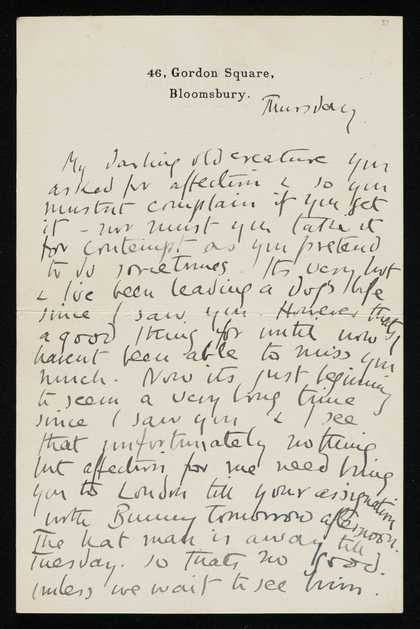 46, Gordon Square,
Bloomsbury.
Thursday
My darling old creature you
asked for affection & so you
mustnt complain if you get
it - nor must you take it
for contempt as you pretend
to do sometimes. Its very hot
& I've been leading a dog's life
since I saw you. However thats
a good thing for until now I
havent been able to miss you
much. Now its just beginning
to seem a very long time
since I saw you & I see
that unfortunately nothing
but affection for me need bring
you to London till your assignation
with Bunny tomorrow afternoon.
The hat man is away till
Tuesday. so thats no good.
unless we wait to see him.